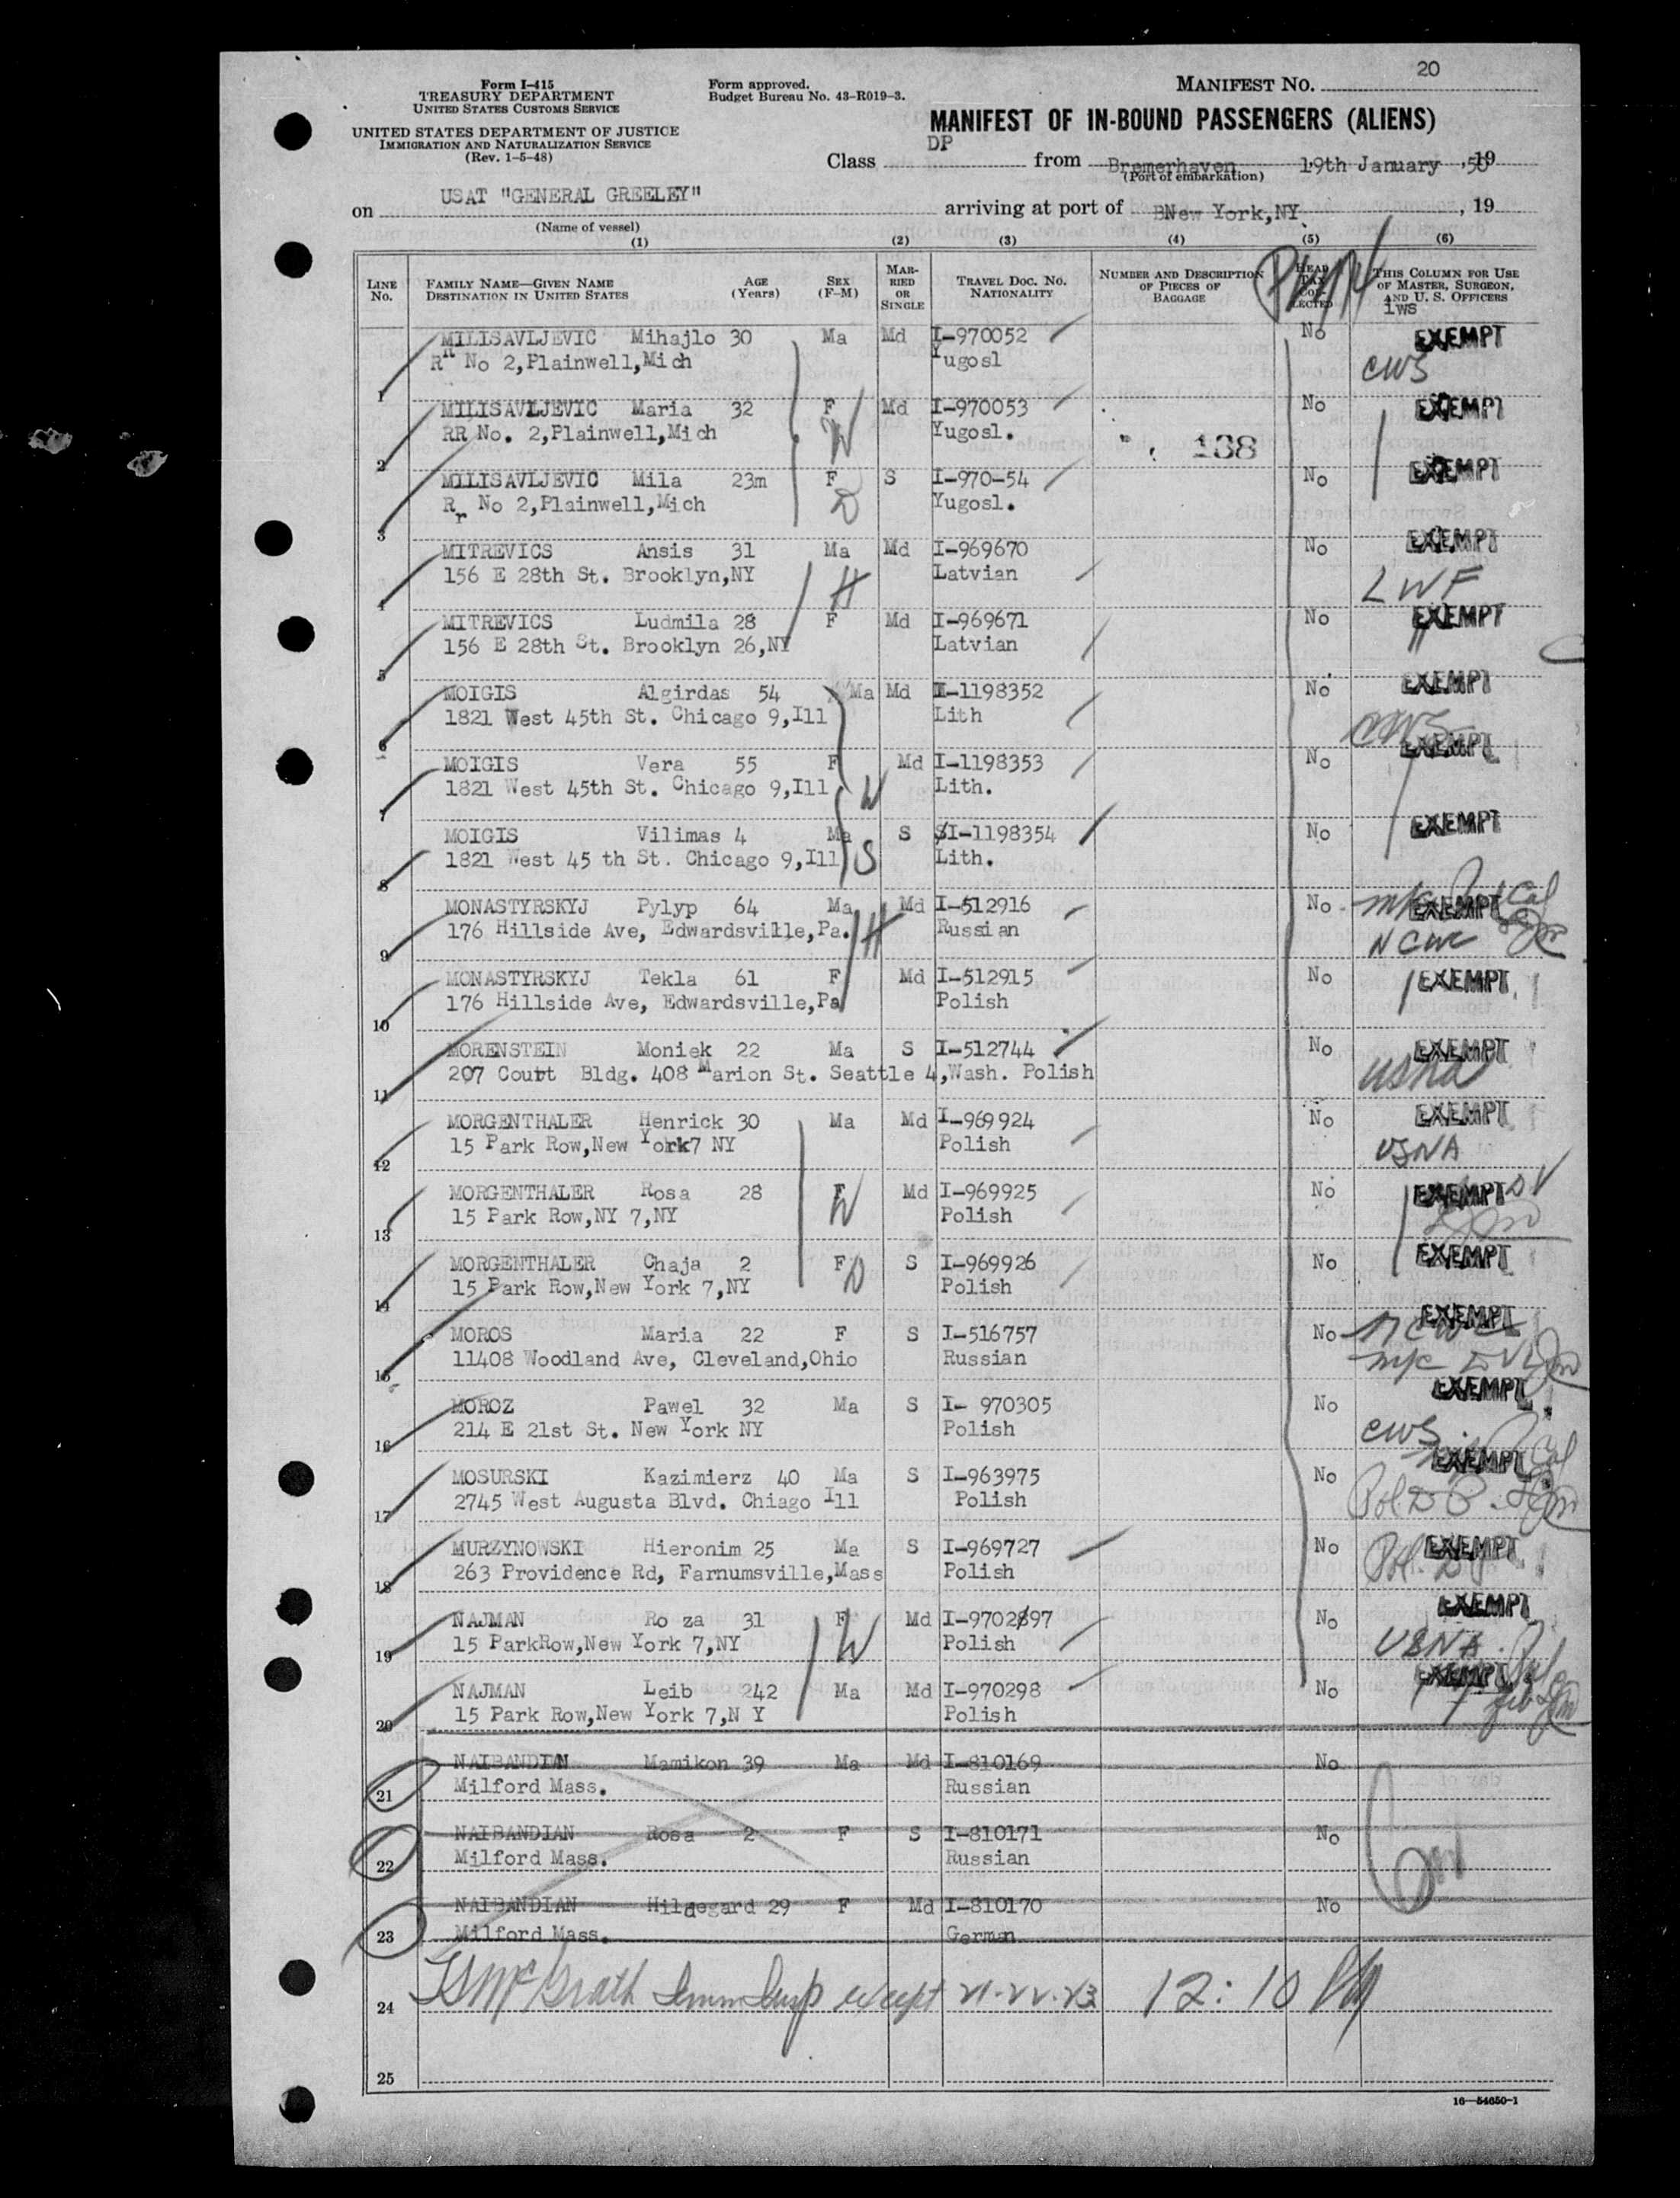 Form I-415
TREASURY DEPARTMENT
UNITED STATES CUSTOMS SERVICE
UNITED STATES DEPARTMENT OF JUSTICE
IMMIGRATION AND NATURALIZATION SERVICE
(Rev. 1-5-48)
Form approved.
Budget Bureau No. 43-R019-3.
MANIFEST NO. 20
MANIFEST OF IN-BOUND PASSENGERS (ALIENS)
Class DP from Bremerhaven 19th January, 1950
(Port of embarkation)
on USAT "GENERAL GREELEY" arriving at port of New York,NY, 19
(Name of vessel)
(1) (2) (3) (4) (5) (6)
LINE No. FAMILY NAME—GIVEN NAME DESTINATION IN UNITED STATES AGE (Years) SEX (F-M) MARRIED OR SINGLE TRAVEL DOC. NO. NATIONALITY NUMBER AND DESCRIPTION OF PIECES OF BAGGAGE HEAD TAX COLLECTED THIS COLUMN FOR USE OF MASTER, SURGEON, AND U. S. OFFICERS
iws
MILISAVLJEVIC Mihajlo 30 Ma Md I-970052 No EXEMPT
1 RR No 2,Plainwell,Mich Yugosl CWS
MILISAVLJEVIC Maria 32 F Md I-970053 No EXEMPT
2 RR No. 2,Plainwell,Mich W Yugosl. 138
MILISAVLJEVIC Mila 23m F S I-970-54 No EXEMPT
3 Rr No 2,Plainwell,Mich D Yugosl.
MITREVICS Ansis 31 Ma Md I-969670 No EXEMPT
4 156 E 28th St. Brooklyn,NY H Latvian LWF
MITREVICS Ludmila 28 F Md I-969671 No EXEMPT
5 156 E 28th St. Brooklyn 26,NY Latvian "
MOIGIS Algirdas 54 Ma Md I-1198352 No EXEMPT
6 1821 West 45th St. Chicago 9,Ill Lith CWS
MOIGIS Vera 55 F Md I-1198353 No EXEMPT
7 1821 West 45th St. Chicago 9,Ill W Lith.
MOIGIS Vilimas 4 Ma S I-1198354 No EXEMPT
8 1821 West 45 th St. Chicago 9,Ill S Lith.
MONASTYRSKYJ Pylyp 64 Ma Md I-512916 No EXEMPT
9 176 Hillside Ave, Edwardsville,Pa. H Russian NCWC
MONASTYRSKYJ Tekla 61 F Md I-512915 No EXEMPT
10 176 Hillside Ave, Edwardsville,Pa Polish
MORENSTEIN Moniek 22 Ma S I-512744 No EXEMPT
11 207 Court Bldg. 408 Marion St. Seattle 4,Wash. Polish USNA
MORGENTHALER Henrick 30 Ma Md I-969924 No EXEMPT
12 15 Park Row,New York7 NY Polish USNA
MORGENTHALER Rosa 28 F Md I-969925 No EXEMPT
13 15 Park Row,NY 7,NY W Polish
MORGENTHALER Chaja 2 F S I-969926 No EXEMPT
14 15 Park Row,New York 7,NY D Polish
MOROS Maria 22 F S I-516757 No EXEMPT
15 11408 Woodland Ave, Cleveland,Ohio Russian NCWC
MOROZ Pawel 32 Ma S I- 970305 No EXEMPT
16 214 E 21st St. New York NY Polish CWS
MOSURSKI Kazimierz 40 Ma S I-963975 No EXEMPT
17 2745 West Augusta Blvd. Chiago Ill Polish
MURZYNOWSKI Hieronim 25 Ma S I-969727 No EXEMPT
18 263 Providence Rd, Farnumsville,Mass Polish
NAJMAN Ro za 31 F Md I-9702897 No EXEMPT
19 15 ParkRow,New York 7,NY W Polish USNA
NAJMAN Leib 242 Ma Md I-970298 No EXEMPT
20 15 Park Row,New York 7,N Y Polish
NAIBANDIAN Mamikon 39 Ma Md I-810169 No
21 Milford Mass. Russian
NAIBANDIAN Rosa 2 F S I-810171 No
22 Milford Mass. Russian
NAIBANDIAN Hildegard 29 F Md I-810170 No
23 Milford Mass. German
24 McGrath Imm Insp except 21.22.23 12:10 PM
25
16—54650-1